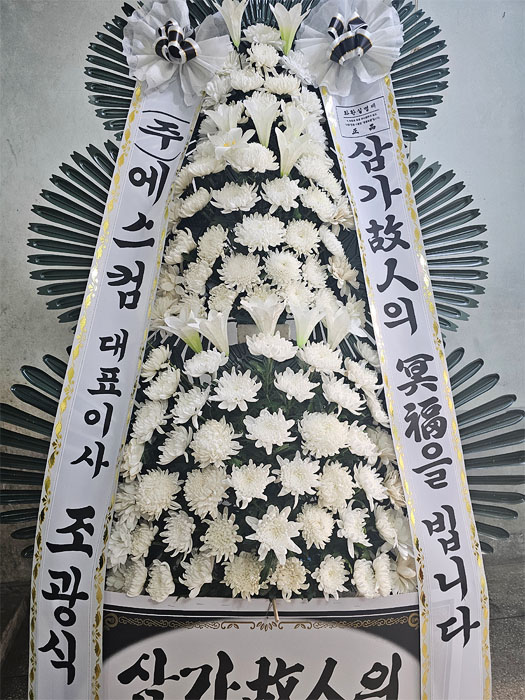 (주)에스컴 대표이사 조광식
화환실명제
正品
삼가 故人의 冥福을 빕니다
삼가 故人의